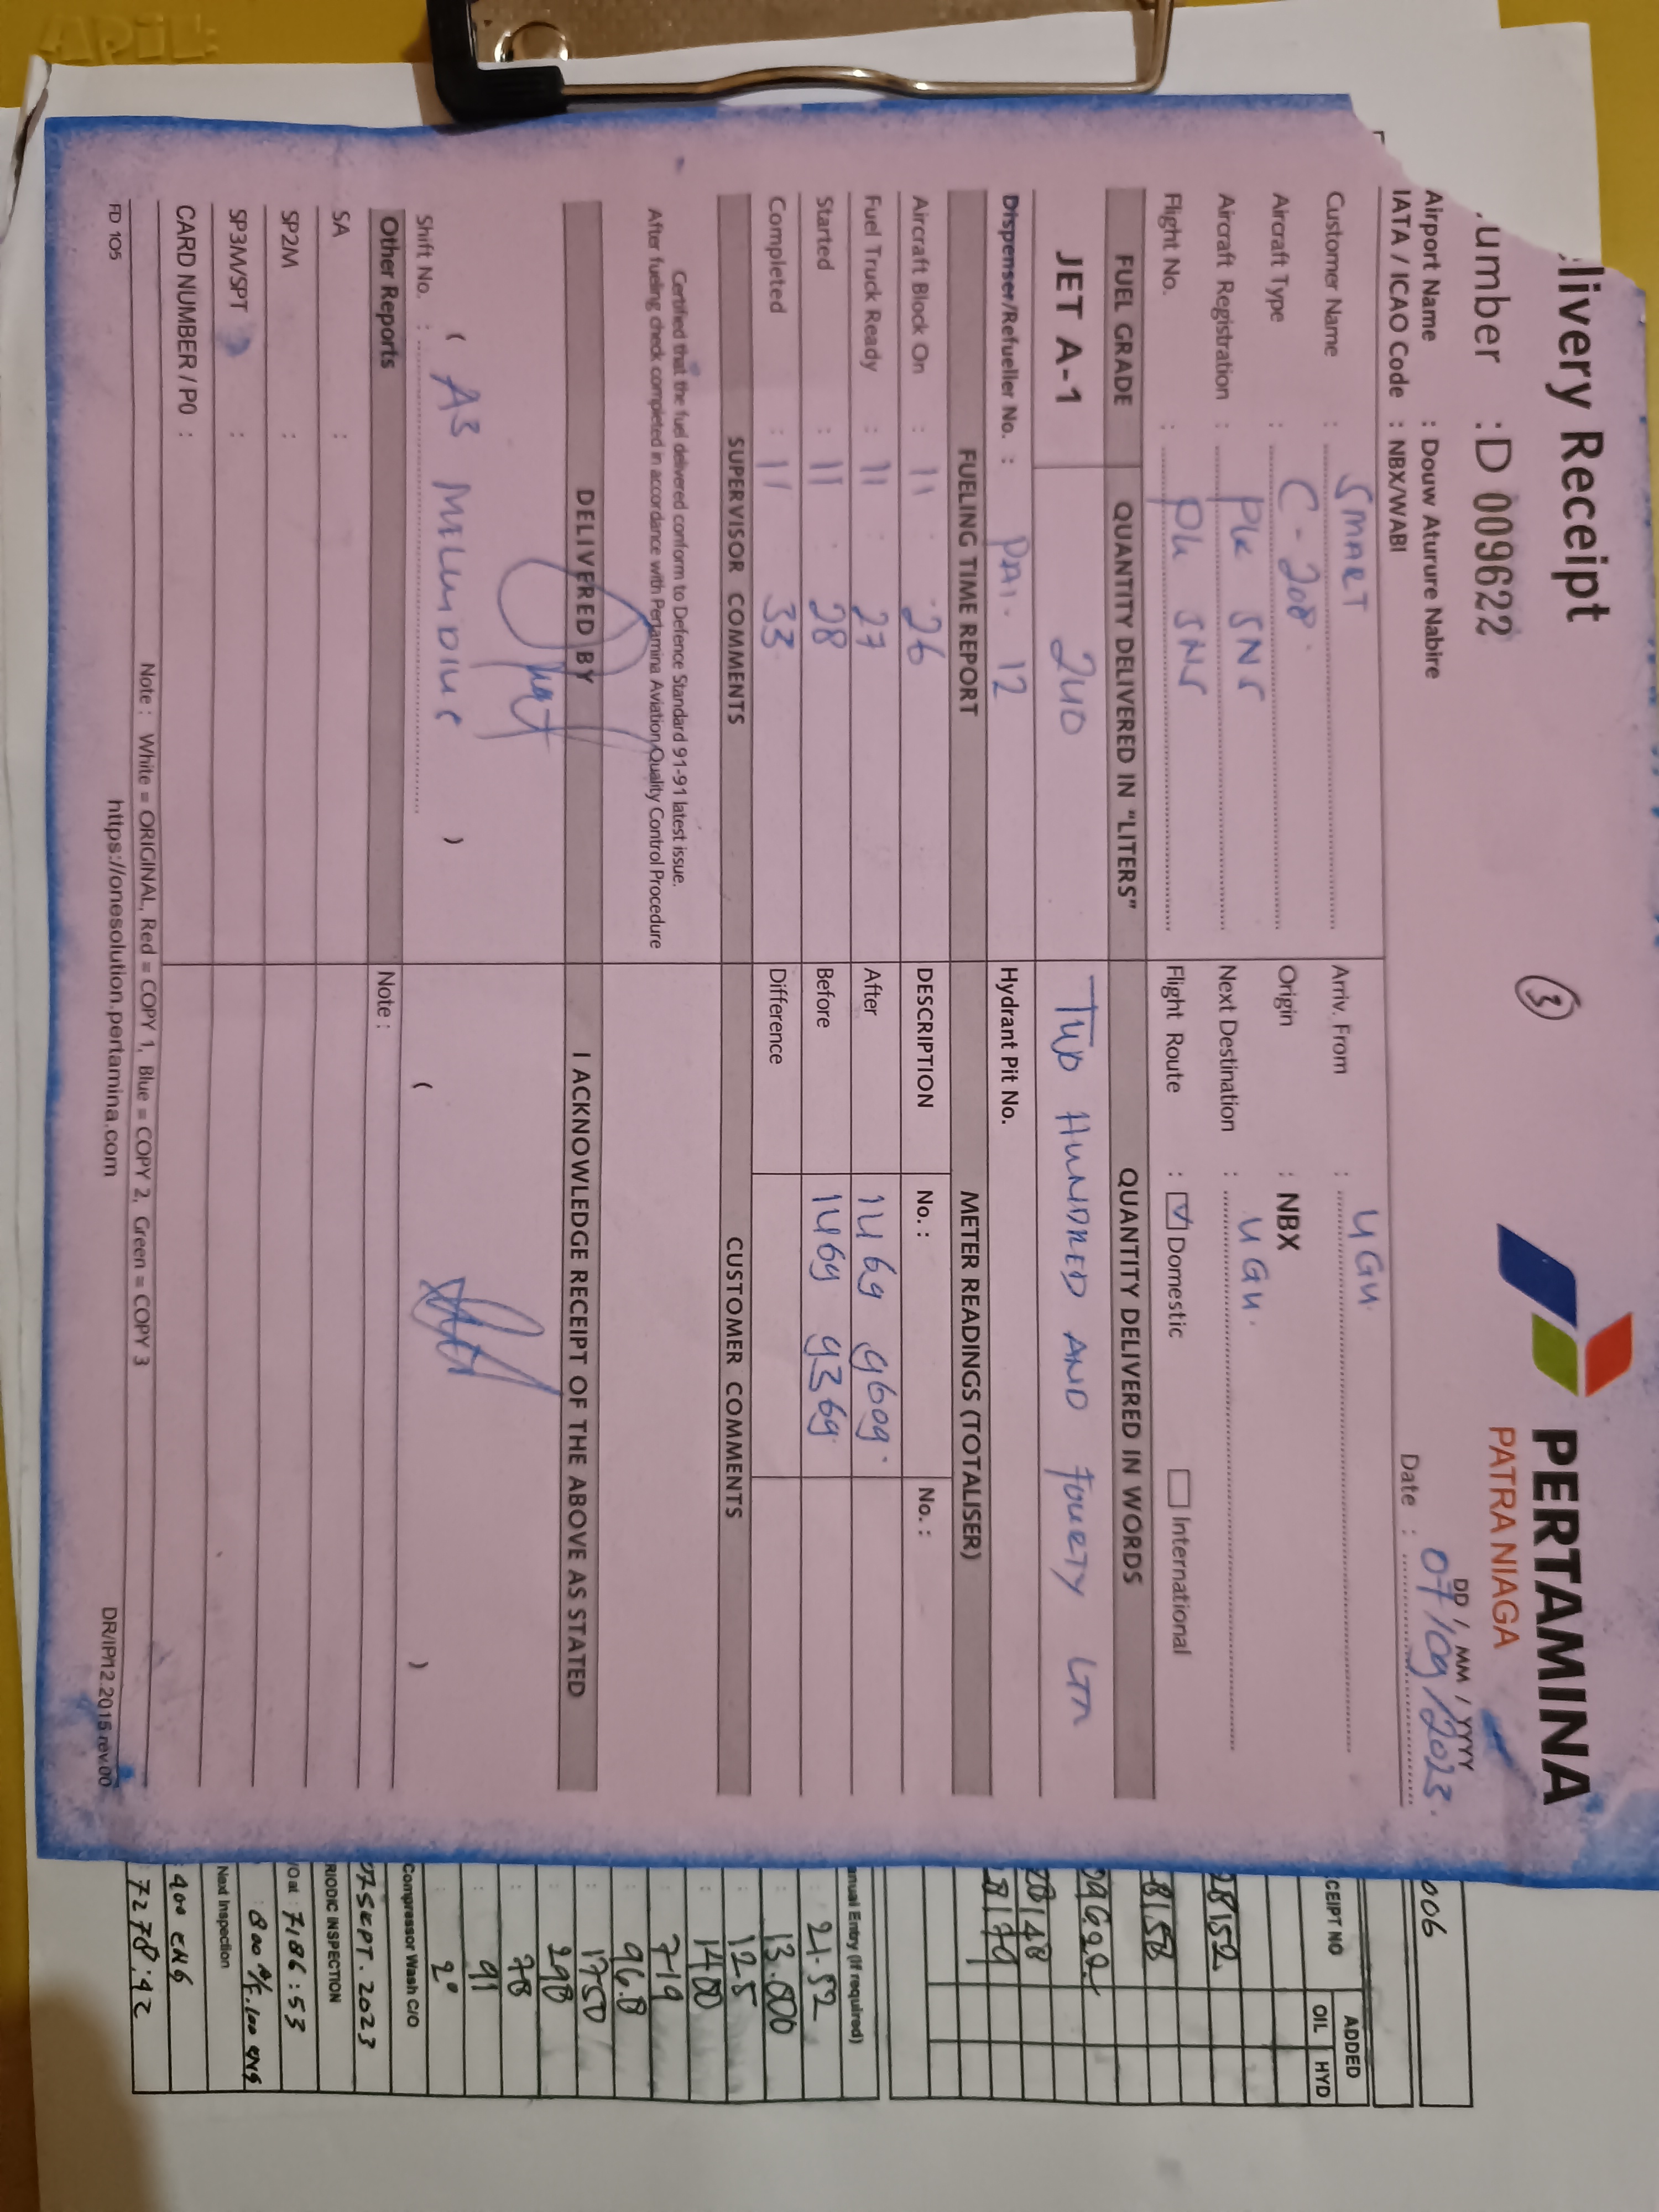 APLI
livery Receipt
3
PERTAMINA
PATRA NIAGA
umber : D 009622
DD / MM / YYYY
Airport Name : Douw Aturure Nabire
Date : 07/09/2023.
IATA / ICAO Code : NBX/WABI
Customer Name : SMART
Arriv. From : UGU.
Aircraft Type : C-208.
Origin : NBX
Aircraft Registration : PK SNS
Next Destination : UGU.
Flight No. : PK SNS
Flight Route : Domestic International
FUEL GRADE QUANTITY DELIVERED IN "LITERS" QUANTITY DELIVERED IN WORDS
JET A-1 240 TWO HUNDRED AND FOURTY LTR
Dispenser/Refueller No. : PAI. 12 Hydrant Pit No.
FUELING TIME REPORT METER READINGS (TOTALISER)
Aircraft Block On : 11 . 26 DESCRIPTION No. : No. :
Fuel Truck Ready : 11 : 27 After 1469 9609.
Started : 11 : 28 Before 1469 9369.
Completed : 11 33 Difference
SUPERVISOR COMMENTS CUSTOMER COMMENTS
Certified that the fuel delivered conform to Defence Standard 91-91 latest issue.
After fueling check completed in accordance with Pertamina Aviation Quality Control Procedure
DELIVERED BY I ACKNOWLEDGE RECEIPT OF THE ABOVE AS STATED
( A3 )
( )
Shift No. :
Other Reports Note :
SA :
SP2M :
SP3M/SPT :
CARD NUMBER / P0 :
Note : White = ORIGINAL, Red = COPY 1, Blue = COPY 2, Green = COPY 3
FD 105 https://onesolution.pertamina.com DR/IP/12.2015 rev.00
006
CEIPT NO ADDED
OIL HYD
28152
8158
09622
28148
8179
anual Entry (If required)
: 21.52
: 13.000
: 12.5
: 1400
: 719
: 96.8
: 1750
: 298
: 78
: 91
: 2°
Compressor Wash C/O
07 SEPT. 2023
RIODIC INSPECTION
/O at : 7186:53
: 800 A/F. 100 ENG
Next Inspection
: 400 ENG
: 7278:42